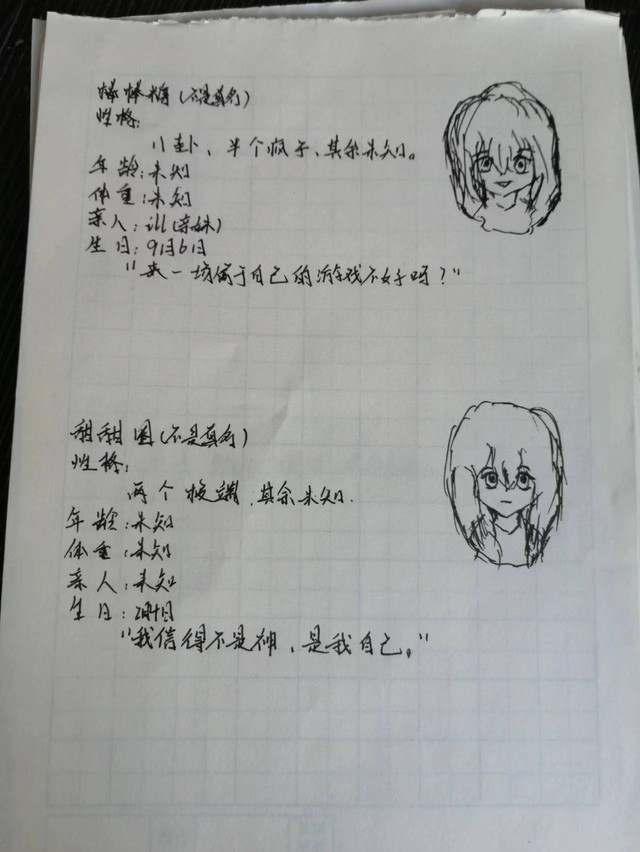 棒棒糖(不是真名)
性格:
八卦、半个疯子、其余未知。
年龄:未知
体重:未知
亲人:ill(亲妹)
生日:9月6日
"来一场属于自己的游戏不好吗?"
甜甜圈(不是真名)
性格:
两个极端、其余未知.
年龄:未知
体重:未知
亲人:未知
生日:
"我信得不是神、是我自己。"